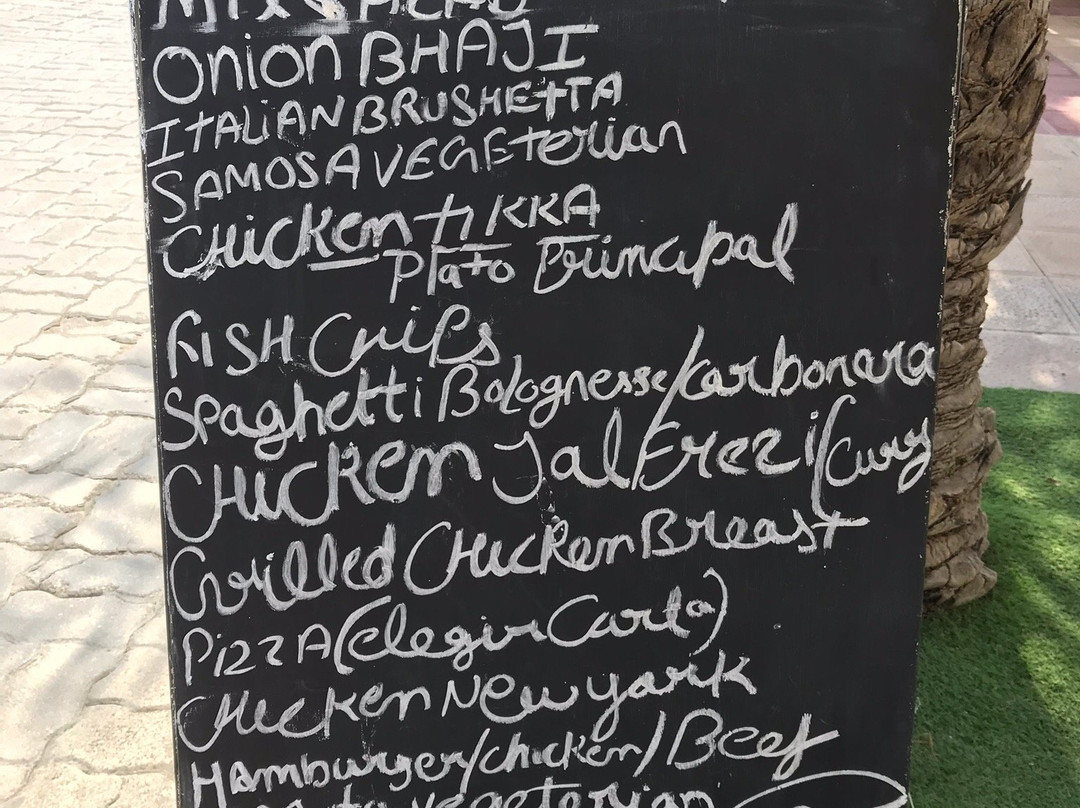 Onion BHAJI
ITALIAN BRUSHETTA
SAMOSA VEGETerian
CHicken tikka
Plato Principal
FISH Chips
Spaghetti Bolognesse/carbonara
CHicken JalFrezi (Curry
Grilled CHicken Breast
PiZZA (elegir Carta)
CHicken New york
Hamburger/chicken/Beef
vegeterian